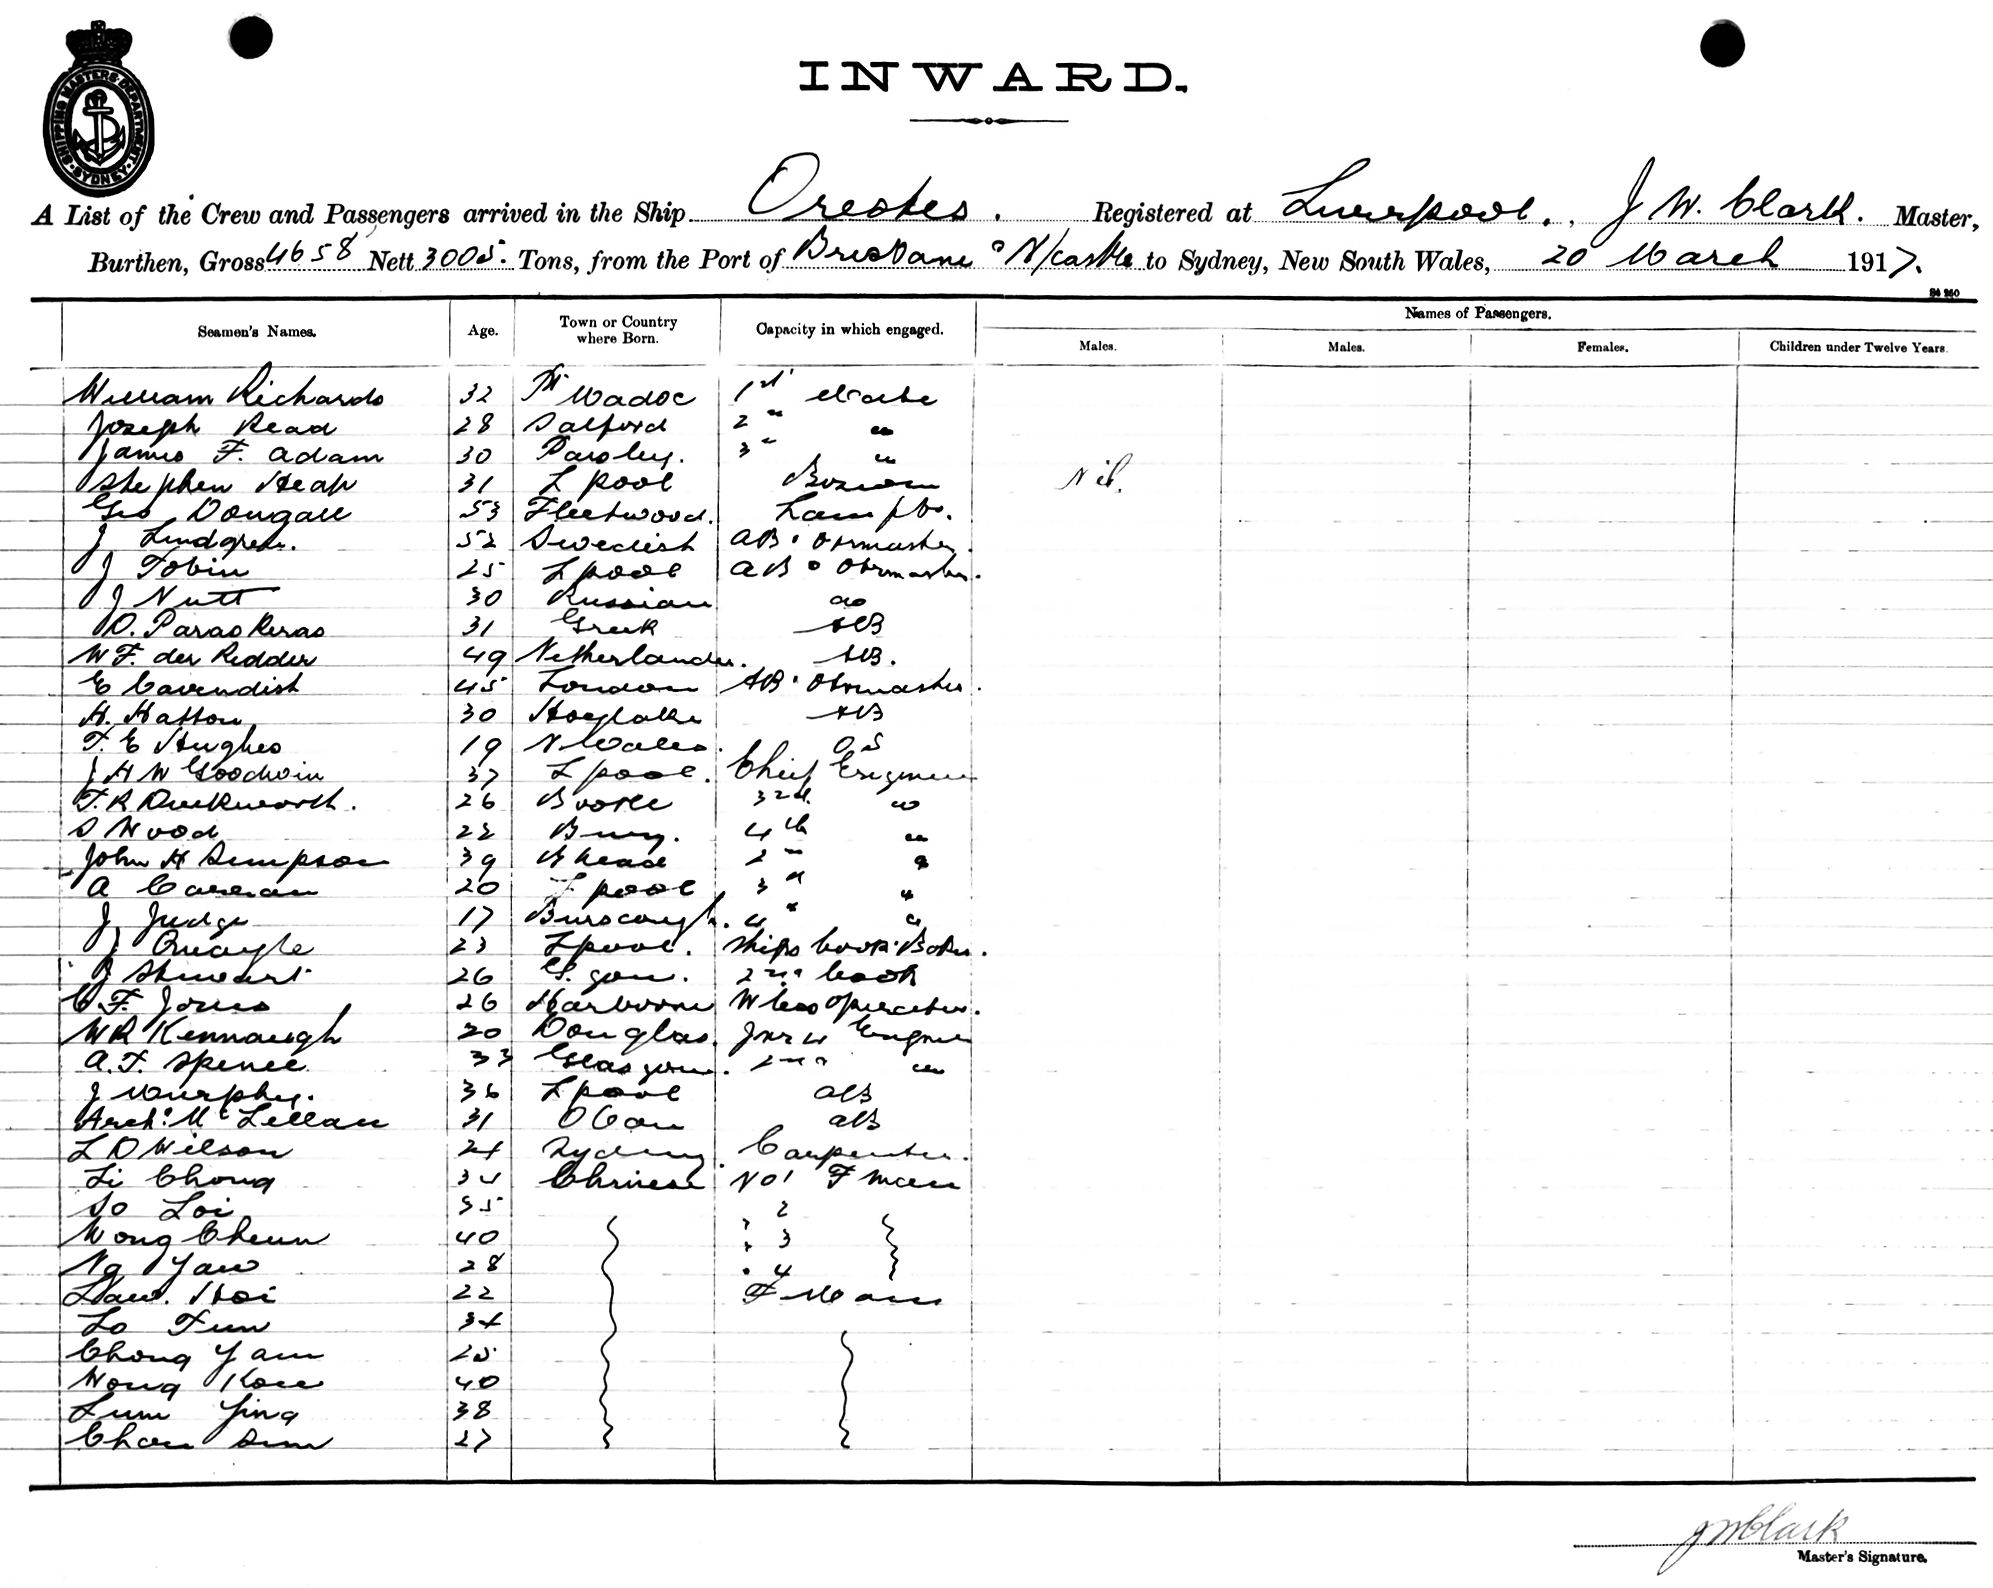 SHIPPING MASTERS DEPARTMENT SYDNEY
INWARD.
A List of the Crew and Passengers arrived in the Ship Orestes. Registered at Liverpool, J W. Clark. Master,
Burthen, Gross 4658 Nett 3005. Tons, from the Port of Brisbane & N/castle to Sydney, New South Wales, 20 March 1917.
Seamen's Names. Age. Town or Country where Born. Capacity in which engaged. Names of Passengers.
Males. Males. Females. Children under Twelve Years.
William Richards 32 Pt Madoc 1st Mate
Joseph Read 28 Salford 2 " "
James F. Adam 30 Paisley. 3 " "
Stephen Heap 31 L pool Bosion Nil.
Geo Dougall 53 Fleetwood. Lamps.
J Lindgren. 52 Swedish AB
J Tobin 25 L pool AB
J Nutt 30 Russian do
D. Paraskevas 31 Greek AB
W F. der Ridder 49 Netherlander. AB.
E Cavendish 45 London AB
H. Hatton 30 Hoylake AB
T. E Hughes 19 N Wales. OS
J H W Goodwin 37 L pool. Chief Engineer
T. R Duckworth. 26 Bootle 3rd. "
S Wood 22 Bury. 4th "
John H Simpson 39 B head 2 " "
A Curran 20 L pool 3 " "
J Judge 17 Burscough. 4 " "
J Quayle 23 L pool. Ships Cook & Baker.
J Stewart 26 G. gow. 2nd Cook
C. F. Jones 26 Harborne W less operator.
W R Kennaugh 20 Douglas. Jnr 4 Engineer
A. F. Spence 33 Glasgow. 2nd "
J Murphy. 36 L pool AB
Arch: McLellan 31 Oban AB
L D Wilson 24 Sydney. Carpenter.
Li Chong 34 Chinese No 1 F man
So Loi 35 " 2
Wong Cheun 40 " 3
Ng Yaw 28 " 4
Law. Hoi 22 F Man
Lo Fun 34
Chong Yam 25
Wong Kow 40
Lum Jing 38
Chan Sum 27
JWClark
Master's Signature.